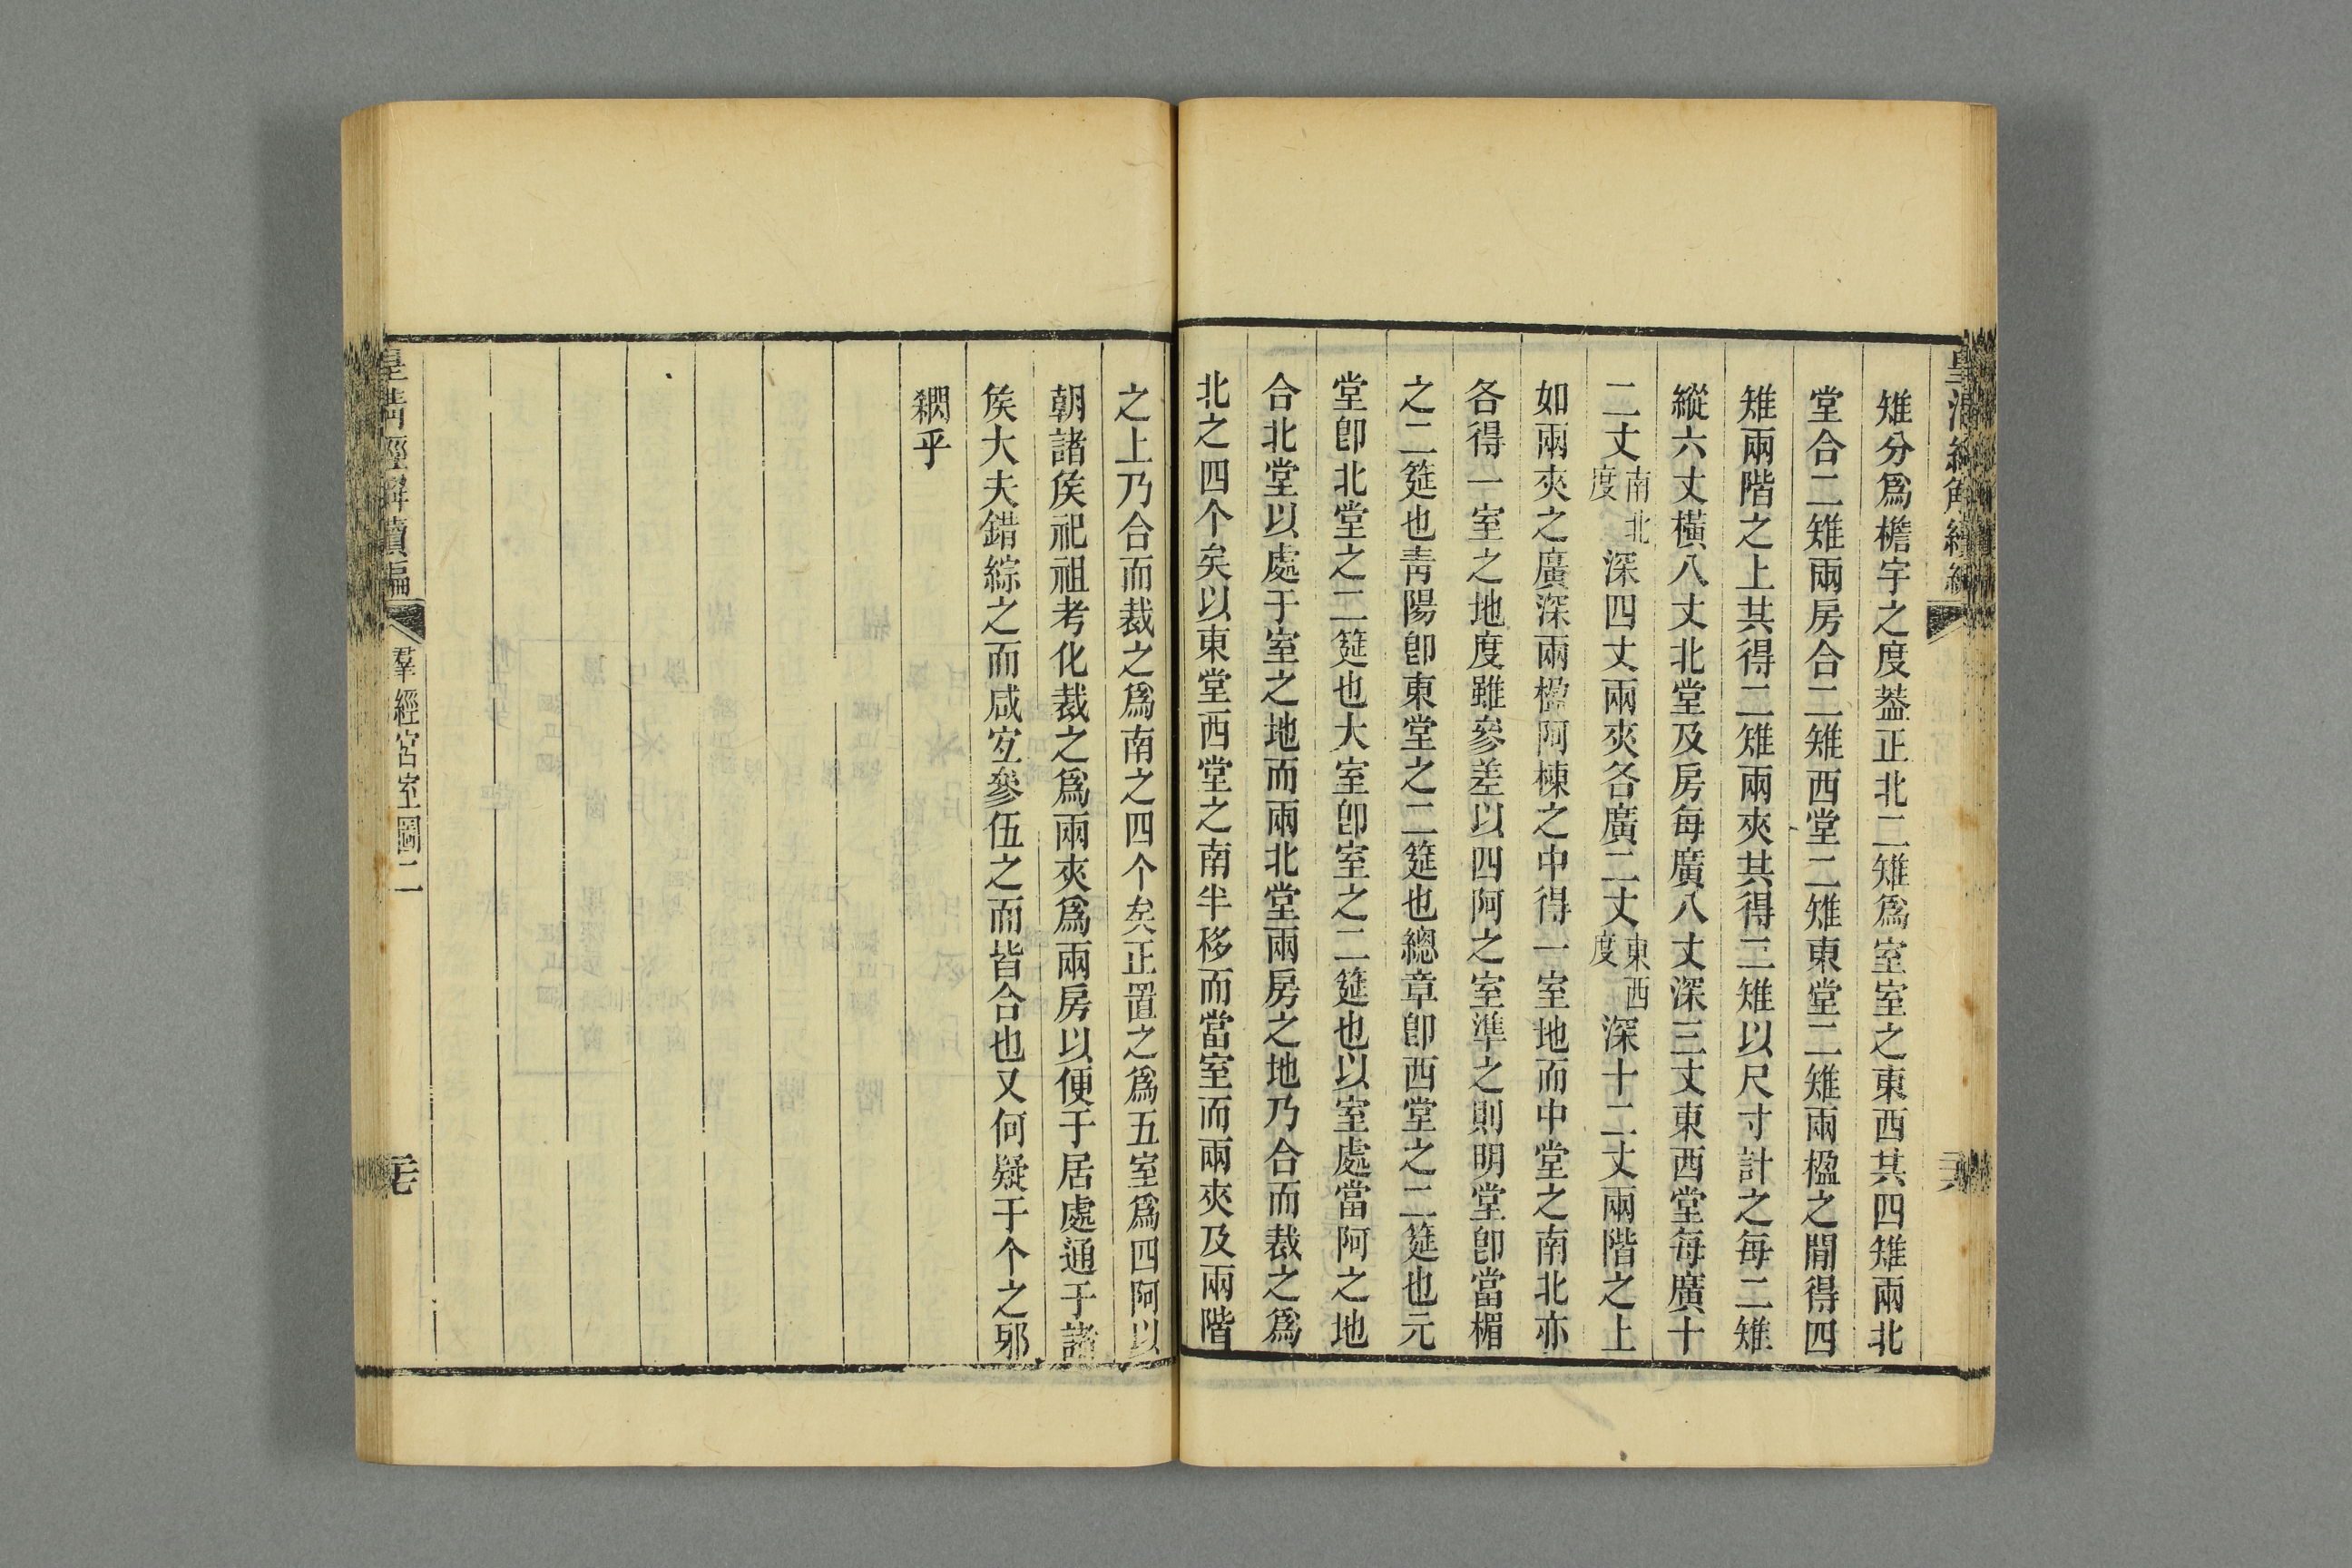 皇清經解續編
雉分爲檐宇之度葢正北二雉爲室室之東西共四雉兩北
堂合二雉兩房合二雉西堂二雉東堂二雉兩楹之閒得四
雉兩階之上共得二雉兩夾共得三雉以尺寸計之每二雉
縱六丈橫八丈北堂及房每廣八丈深三丈東西堂每廣十
二丈南北度深四丈兩夾各廣二丈東西度深十二丈兩階之上
如兩夾之廣深兩楹阿棟之中得一室地而中堂之南北亦
各得一室之地度雖參差以四阿之室準之則明堂卽當楣
之二筵也靑陽卽東堂之二筵也總章卽西堂之二筵也元
堂卽北堂之二筵也大室卽室之二筵也以室處當阿之地
合北堂以處于室之地而兩北堂兩房之地乃合而裁之爲
北之四个矣以東堂西堂之南半移而當室而兩夾及兩階
之上乃合而裁之爲南之四个矣正置之爲五室爲四阿以
朝諸矦祀祖考化裁之爲兩夾爲兩房以便于居處通于諸
矦大夫錯綜之而咸宐參伍之而皆合也又何疑于个之邪
繝乎
皇淸經解續編
羣經宮室圖二